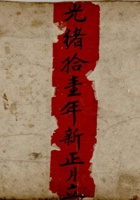 光緒拾壹年新正月